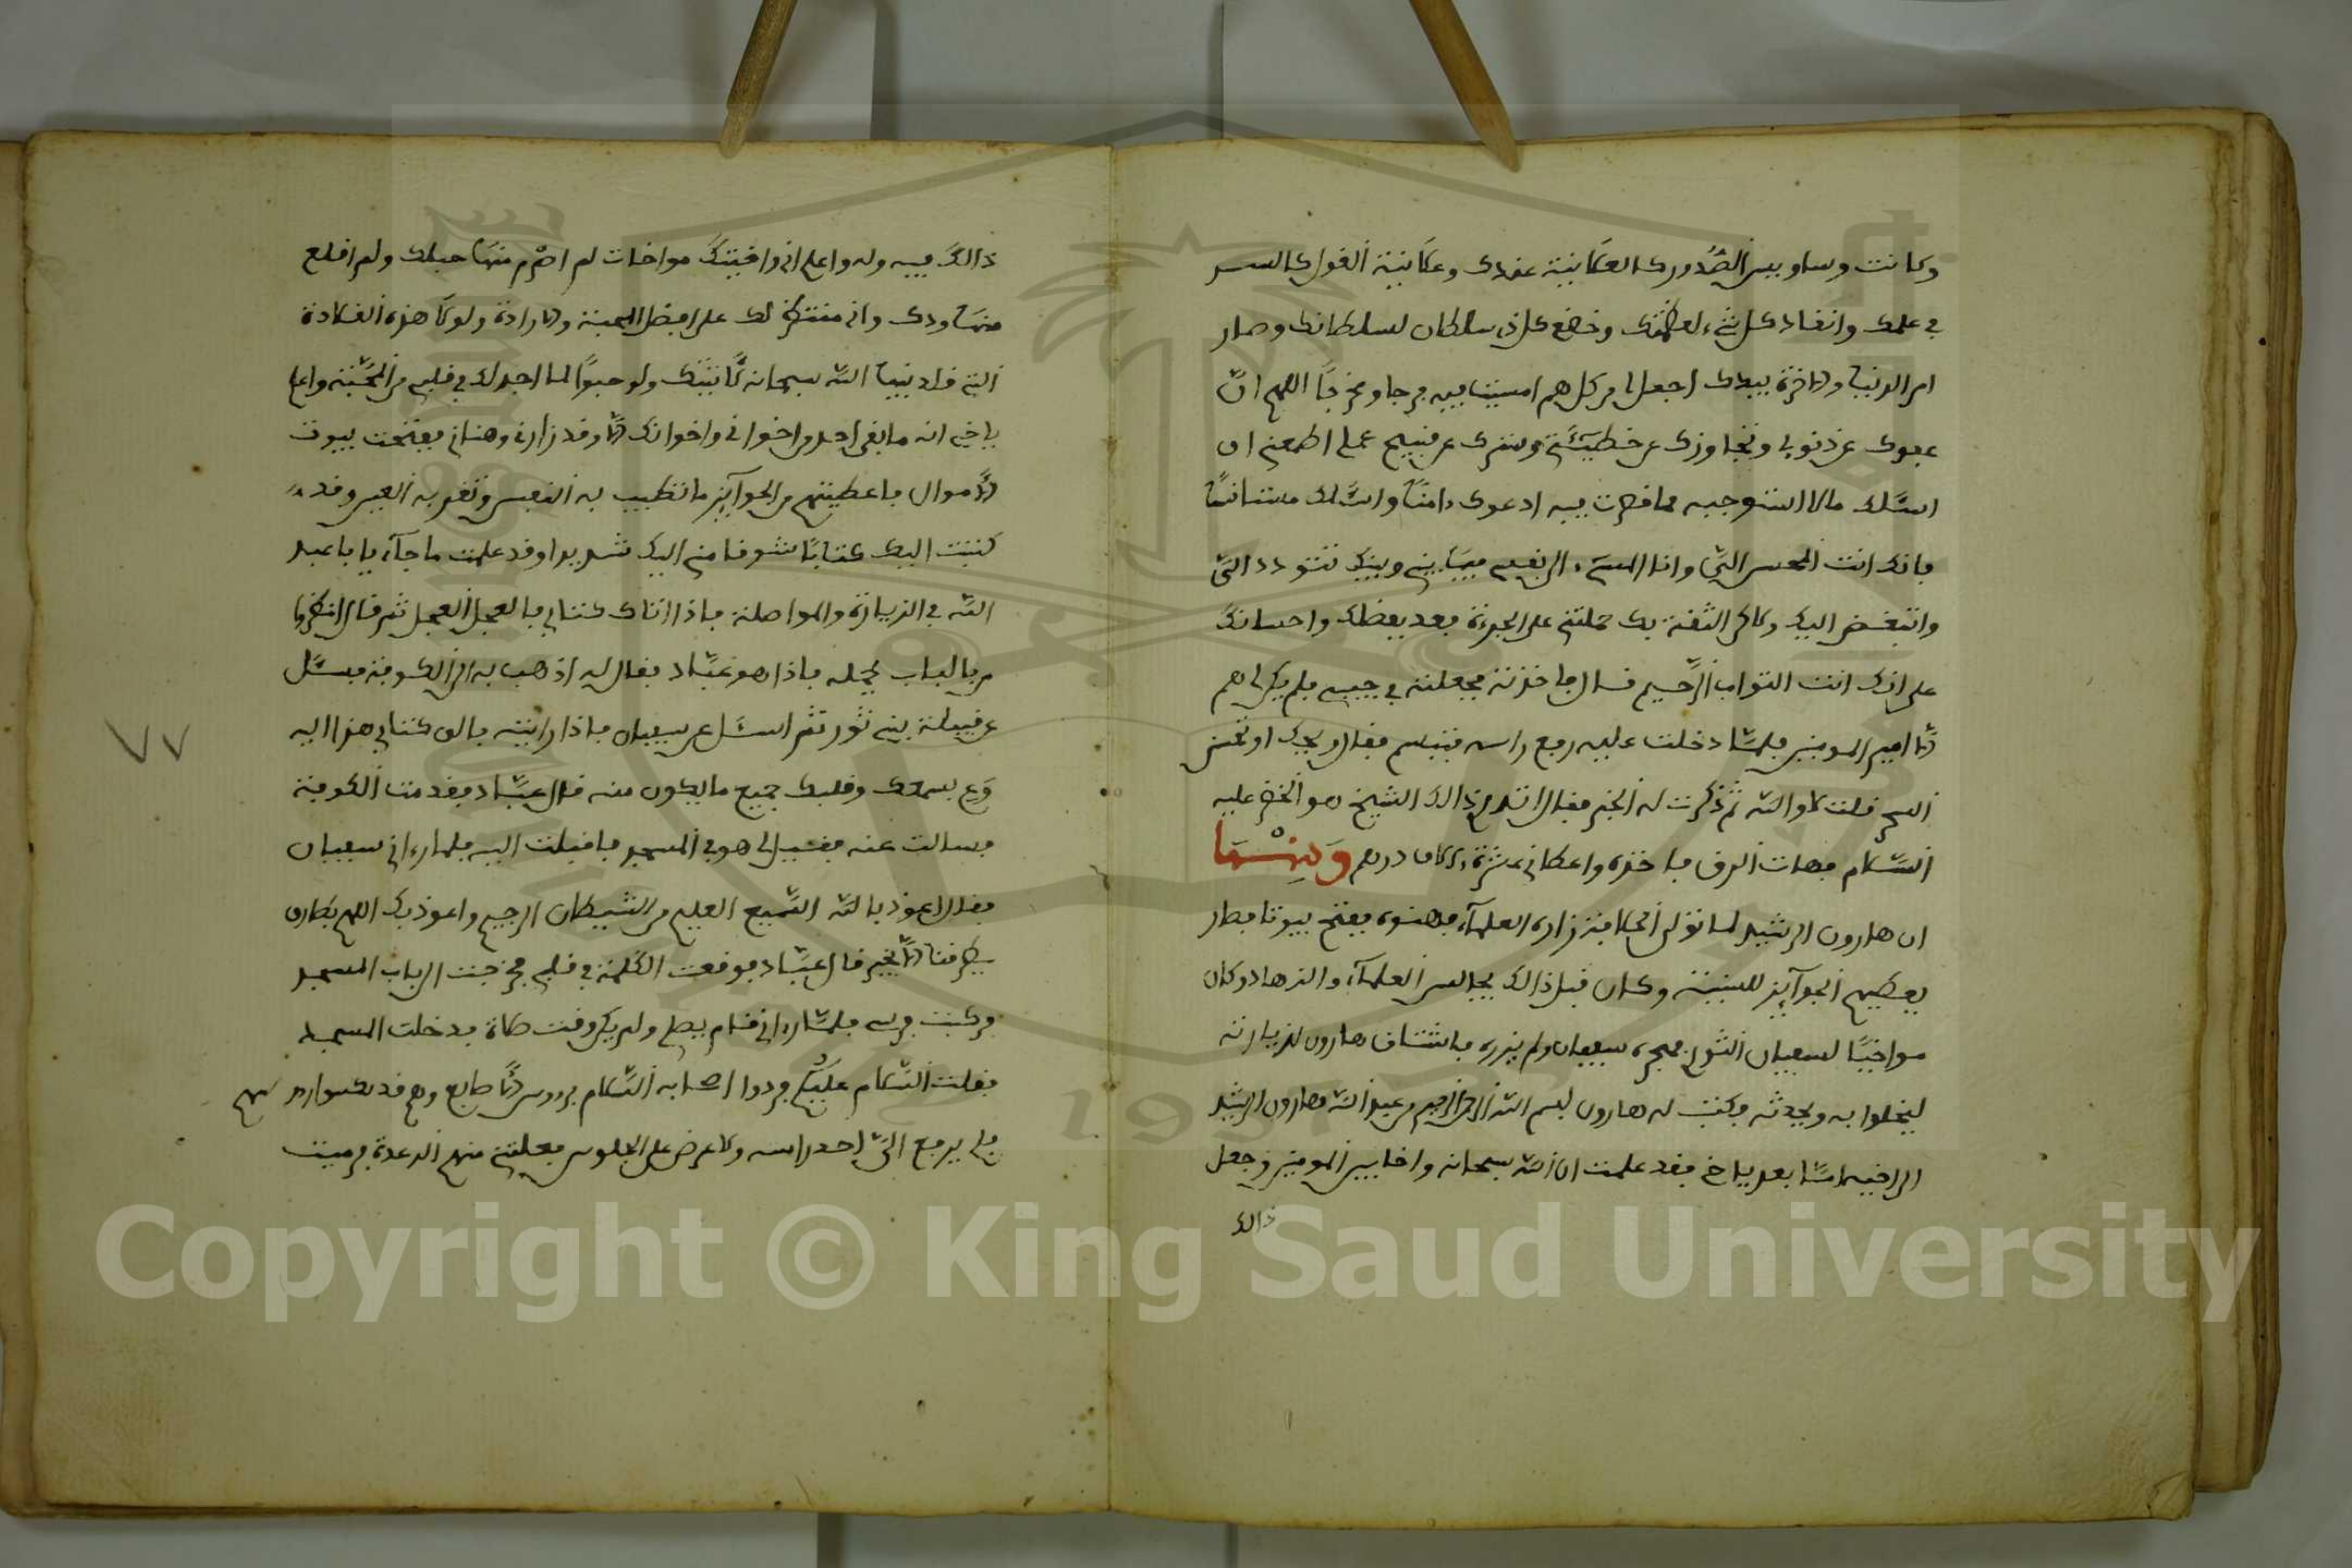 وكانت وساوس الصدور كالعلانية عندك وعلانية القول كالسر
في علمك وانقاد كل شيء لعظمتك وخضع كل ذي سلطان لسلطانك وصار
امر الدنيا والاخرة بيدك اجعل لي من كل هم امسيت فيه فرجا ومخرجا اللهم ان
عفوك عن ذنوبي وتجاوزك عن خطيئتي وسترك عن قبيح عملي اطمعني ان
اسئلك مالا استوجبه مما قصرت فيه ادعوك ءامنا واسئلك مستانسا
فانك انت المحسن الي وانا المسيء الى نفسي فيما بيني وبينك تتودد الي
واتبغض اليك ولاكن الثقة بك حملتني على الجرءة فعد بفضلك واحسانك
علي انك انت التواب الرحيم قال فاخذته فجعلته في جيبي فلم يكن لي هم
الا امير المومنين فلما دخلت عليه رفع راسه فتبسم فقال ويحك اوتحسن
السحر قلت لا والله ثم ذكرت له الخبر فقال اتدري ذالك الشيخ هو الخضر عليه
السلام فهات الرق فاخذه واعطاني عشرة ءالاف درهم ومنها
ان هارون الرشيد لما تولى الخلافة زاره العلماء فهنوه ففتح بيوتا فطار
يعطيهم الجوآيز السنية وكان قبل ذالك يجالس العلماء والزهاد وكان
مواخيا لسفيان الثوري فهجره سفيان ولم يزره فاشتاق هارون لزيارته
ليخلوا به ويحدثه فكتب له هارون بسم الله الرحمن الرحيم من عبد الله هارون الرشيد
الى اخيه اما بعد ياخي فقد علمت ان الله سبحانه واخا بين المومنين وجعل
ذالك
ذالك فيه وله واعلم اني واخيتك مواخات لم اصرم منها حبلك ولم اقطع
منها ودك واني منتظر لك على افضل المحبة والارادة ولولا هذه القلادة
التي قلدنيها الله سبحانه لاتيتك ولو حبوا لما اجد لك في قلبي من المحبة واعلم
ياخي انه ما بقي احد من اخواني واخوانك الا وقد زارني وهناني ففتحت بيوت
الاموال فاعطيتهم من الجوآيز ما تطيب به النفس وتقر به العين وقد
كتبت اليك كتابا شوقا مني اليك شديدا وقد علمت ما جآء يا با عبد
الله في الزيارة والمواصلة فاذا اتاك كتابي فالعجل العجل ثم قال انظروا
من بالباب يحمله فاذا هو عباد فقال له اذهب به الى الكوفة فسئل
عن قبيلة بني ثور ثم اسئل عن سفيان فاذا رايته فالق كتابي هذا اليه
وع بسمعك وقلبك جميع ما يكون منه قال عباد فقدمت الكوفة
فسالت عنه فقيل لي هو في المسجد فاقبلت اليه فلما رءاني سفيان
فقال اعوذ بالله السميع العليم من الشيطان الرجيم واعوذ بك اللهم من طارق
يطرقنا الا بخير قال عباد فوقعت الكلمة في قلبي فخرجت الى باب المسجد
فركبت فرسي فلما رءاني قام يصلي ولم يكن وقت صلاة فدخلت المسجد
فقلت السلام عليكم فردوا اصحابه السلام برءوس الاصابع وهم قد نكسوا رءوسهم
فلم يرفع الي احد راسه ولا عرض علي الجلوس فعلتني منهم الرعدة فرميت
٧٧